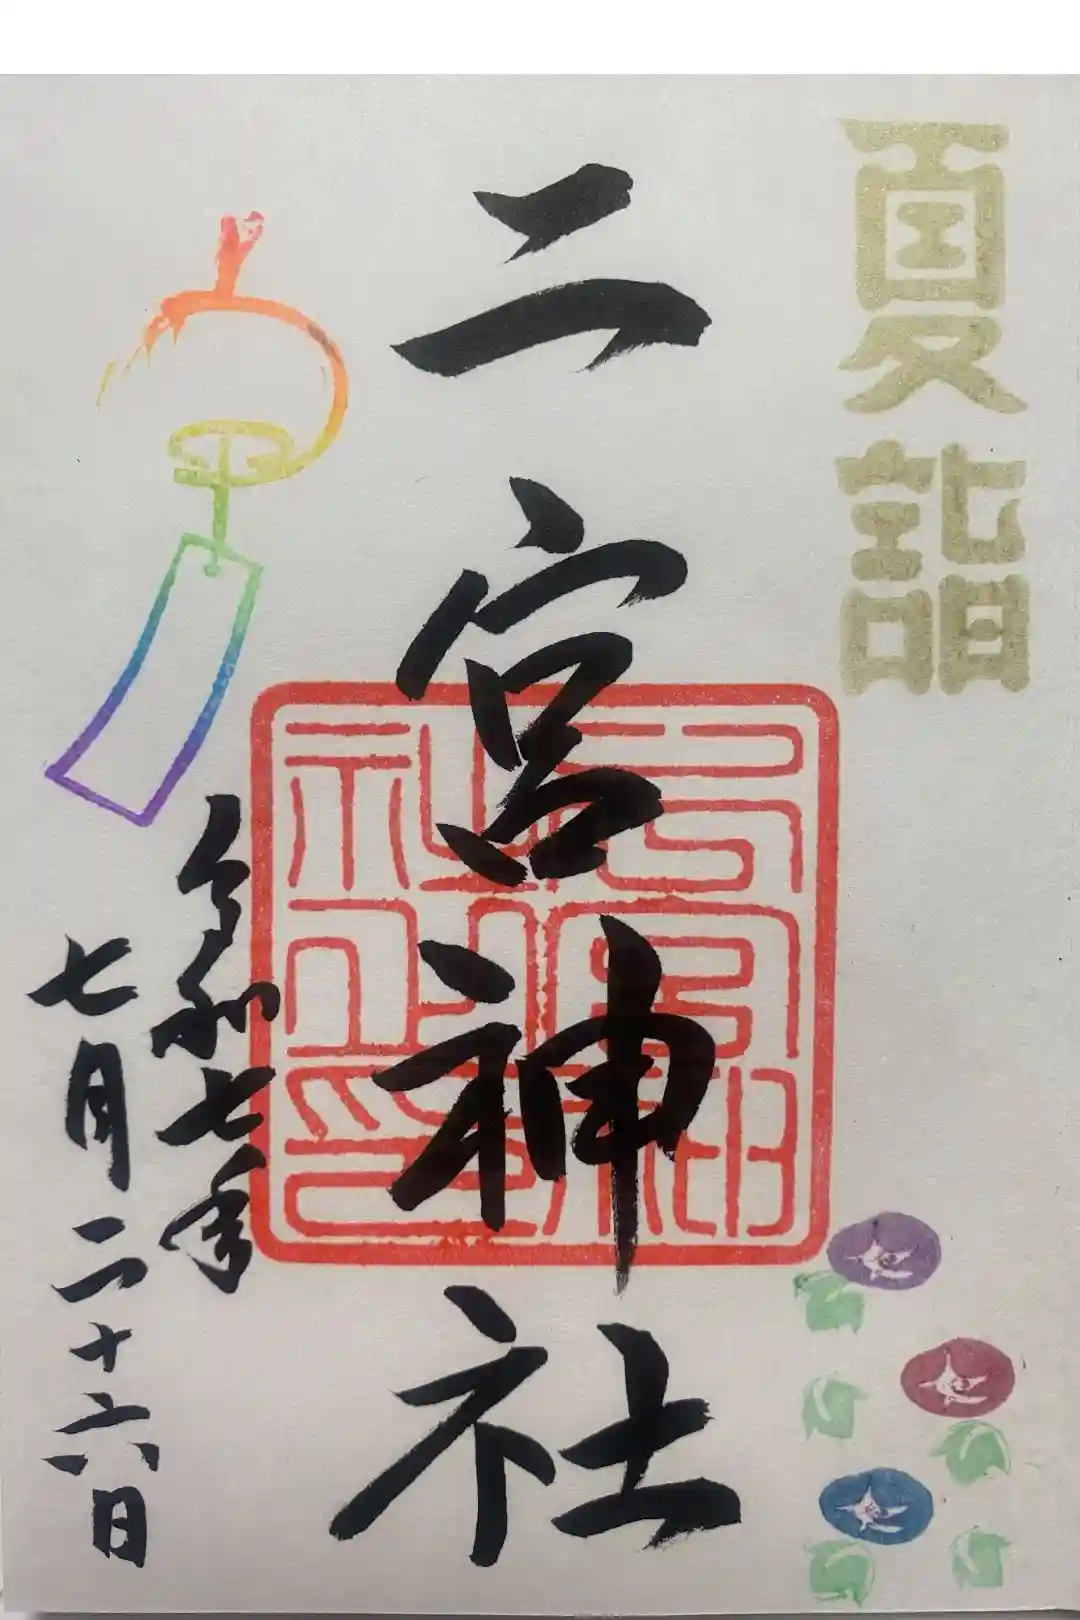 夏詣
二宮神社
令和七年
七月二十六日